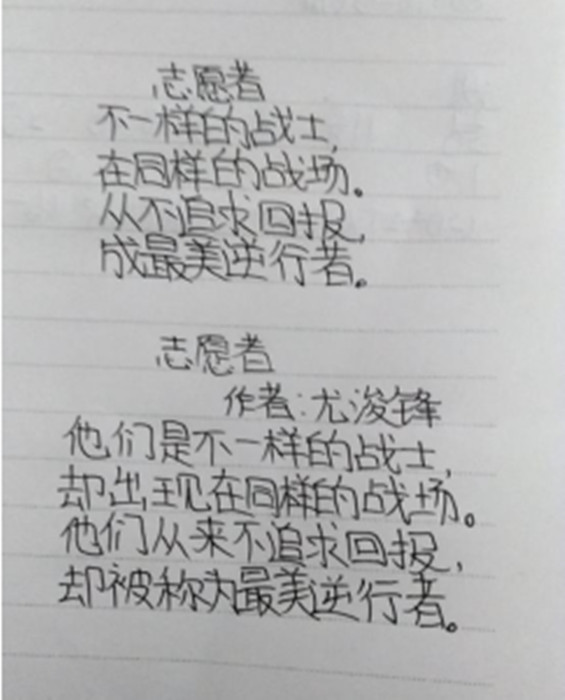 志愿者
不一样的战士,
在同样的战场。
从不追求回报,
成最美逆行者。
志愿者
作者:尤浚锋
他们是不一样的战士,
却出现在同样的战场。
他们从来不追求回报,
却被称为最美逆行者。